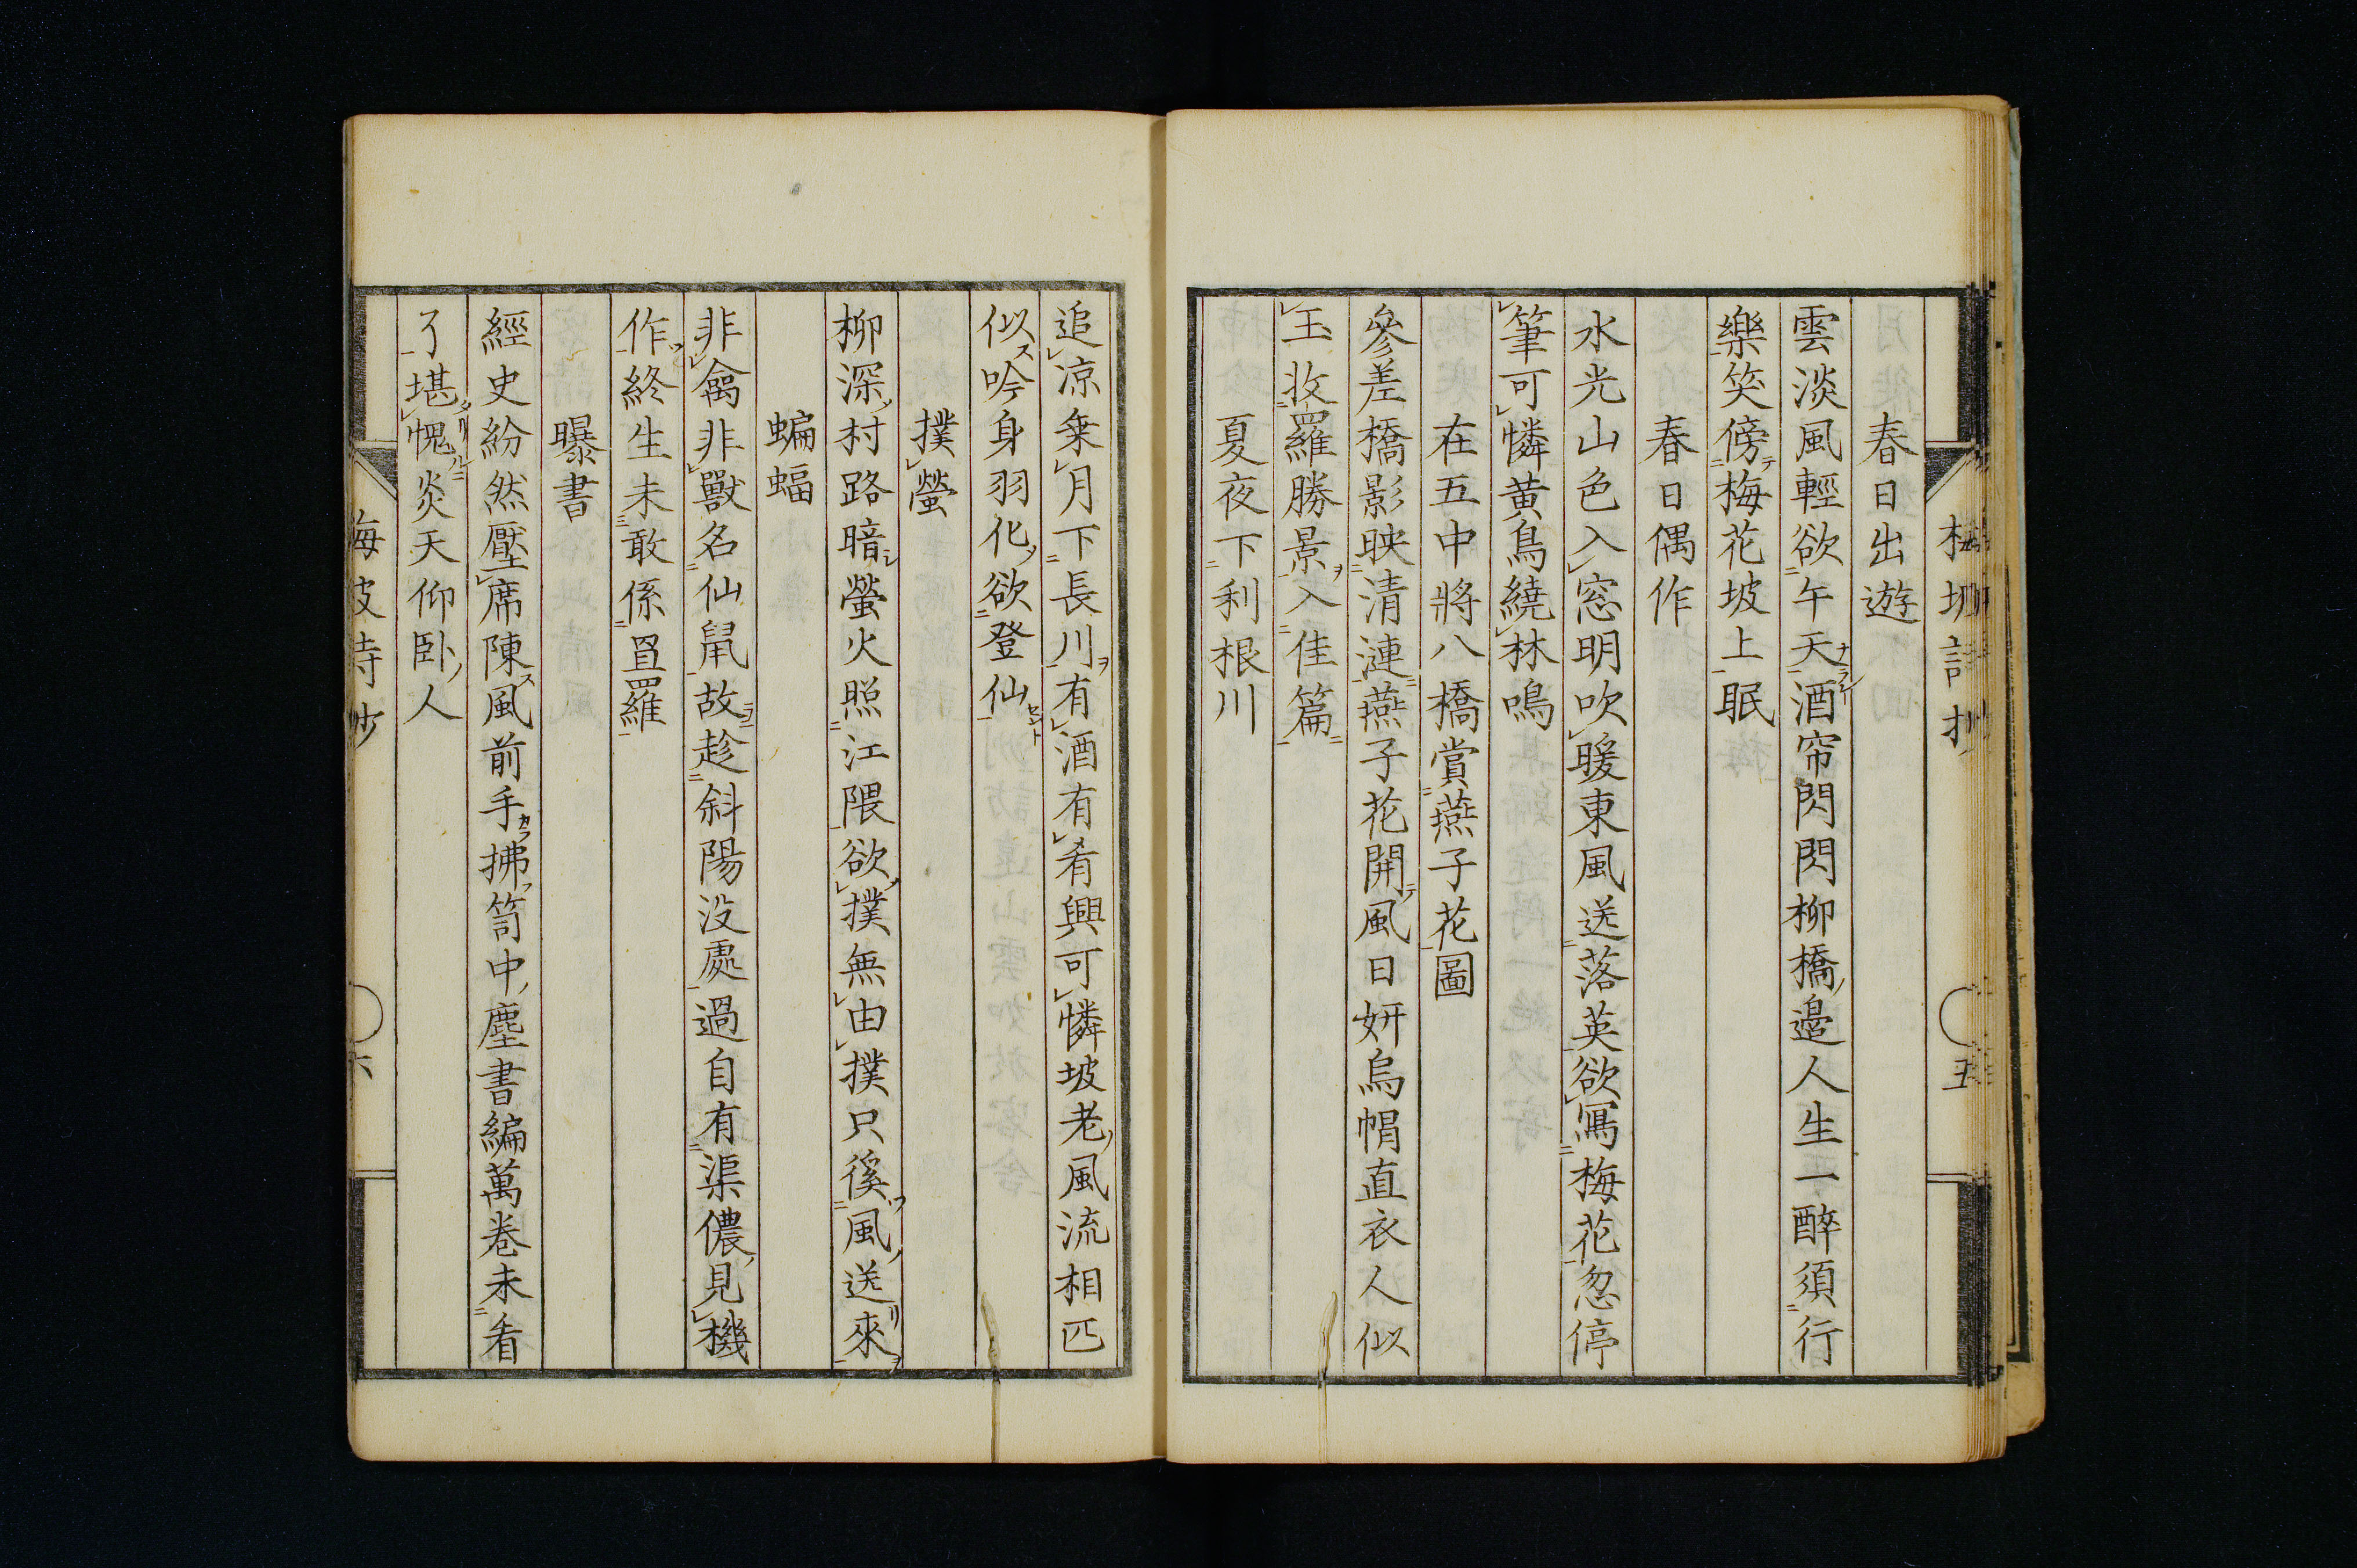 春日出遊
雲淡風輕欲午天酒帘閃閃柳橋邊人生一醉須行
樂笑傍梅花坡上眠
春日偶作
水光山色入窓明吹暖東風送落英欲寫梅花忽停
筆可憐黃鳥繞林鳴
在五中將八橋賞燕子花圖
參差橋影映清漣燕子花開風日姸烏帽直衣人似
玉收羅勝景入佳篇
夏夜下利根川
五
追凉乗月下長川有酒有肴興可憐坡老風流相匹
似吟身羽化欲登仙
撲螢
柳深村路暗螢火照江隈欲撲無由撲只徯風送來
蝙蝠
非禽非獸名仙鼠故趁斜陽没處過自有渠儂見機
作終生未敢係罝羅
曝書
經史紛然壓席陳風前手拂笥中塵書編萬卷未看
了堪愧炎天仰臥人
梅坡詩抄
六